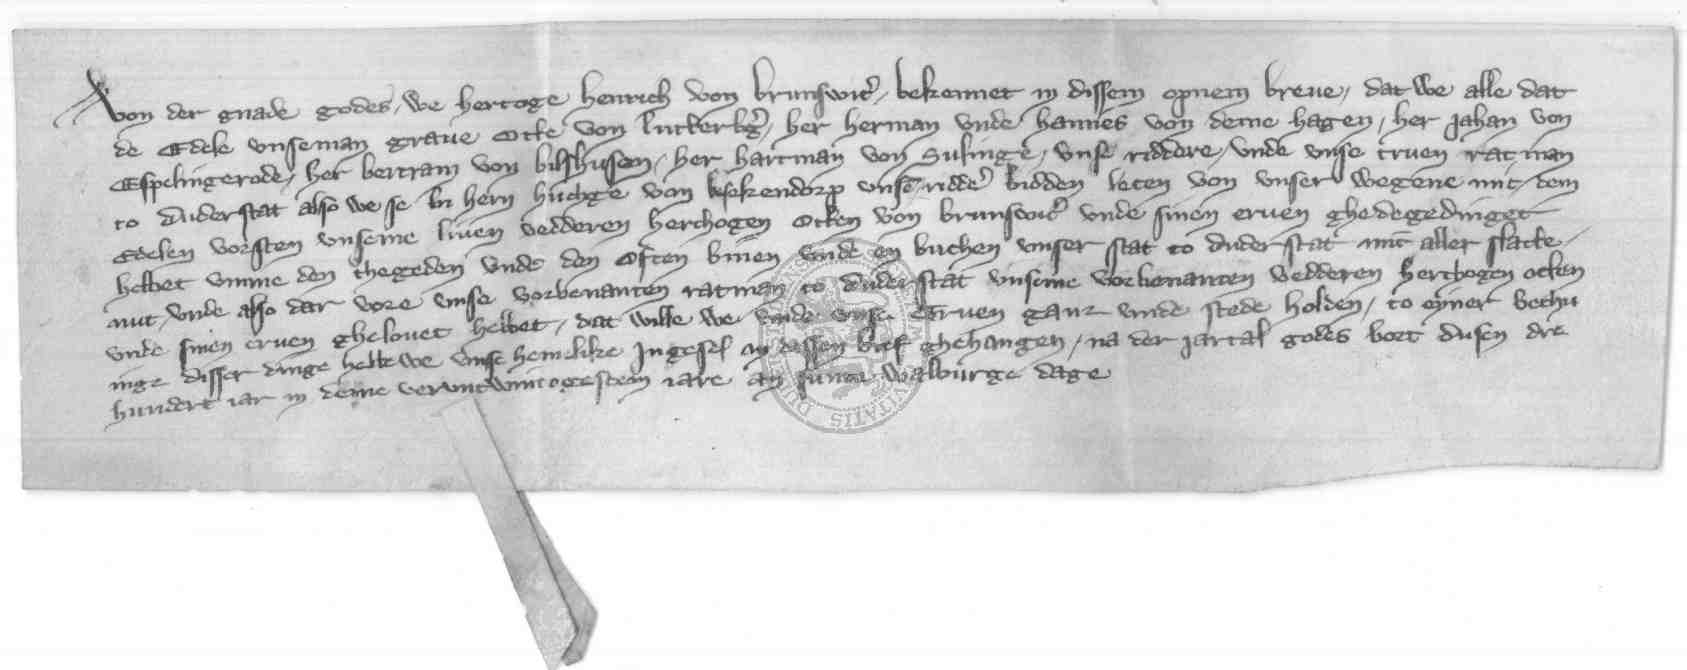 Von der gnade godes, we hertoge henrich von brunswic, bekennet in dissem opnem breue, dat we alle dat
de Edele unse man graue Otte von lutterberg, her herman unde hannes von deme hagen, her jahan von
Espelingerode, her bertram von bilshusen, her hartman von Sulinge, unse riddere, unde unse truen ratman
to duderstat also we se bi hern huchge von esekendorp unsem ridder bidden leten von unser wegene mit dem
Edelen vorsten unseme liuen vedderen herthogen Otten von brunswic unde sinen eruen ghedegedinget
hebbet umme den thegeden unde den Osten binnen unde en buthen unser stat to duderstat mit aller slachte
nut, unde also dar vore unse vorbenanten ratman to duderstat unseme vorbenanten vedderen herthogen otten
unde sinen eruen ghelouet hebbet, dat wille we unde unse Eruen ganz unde stede holden, to eyner bethu
inge disser dinge hebbe we unse hemelike Ingesel an dessen bref ghehangen, na der jartal godes bort dusen dre
hundert iar in deme veruntwintogestem iare an sunte walburge dage